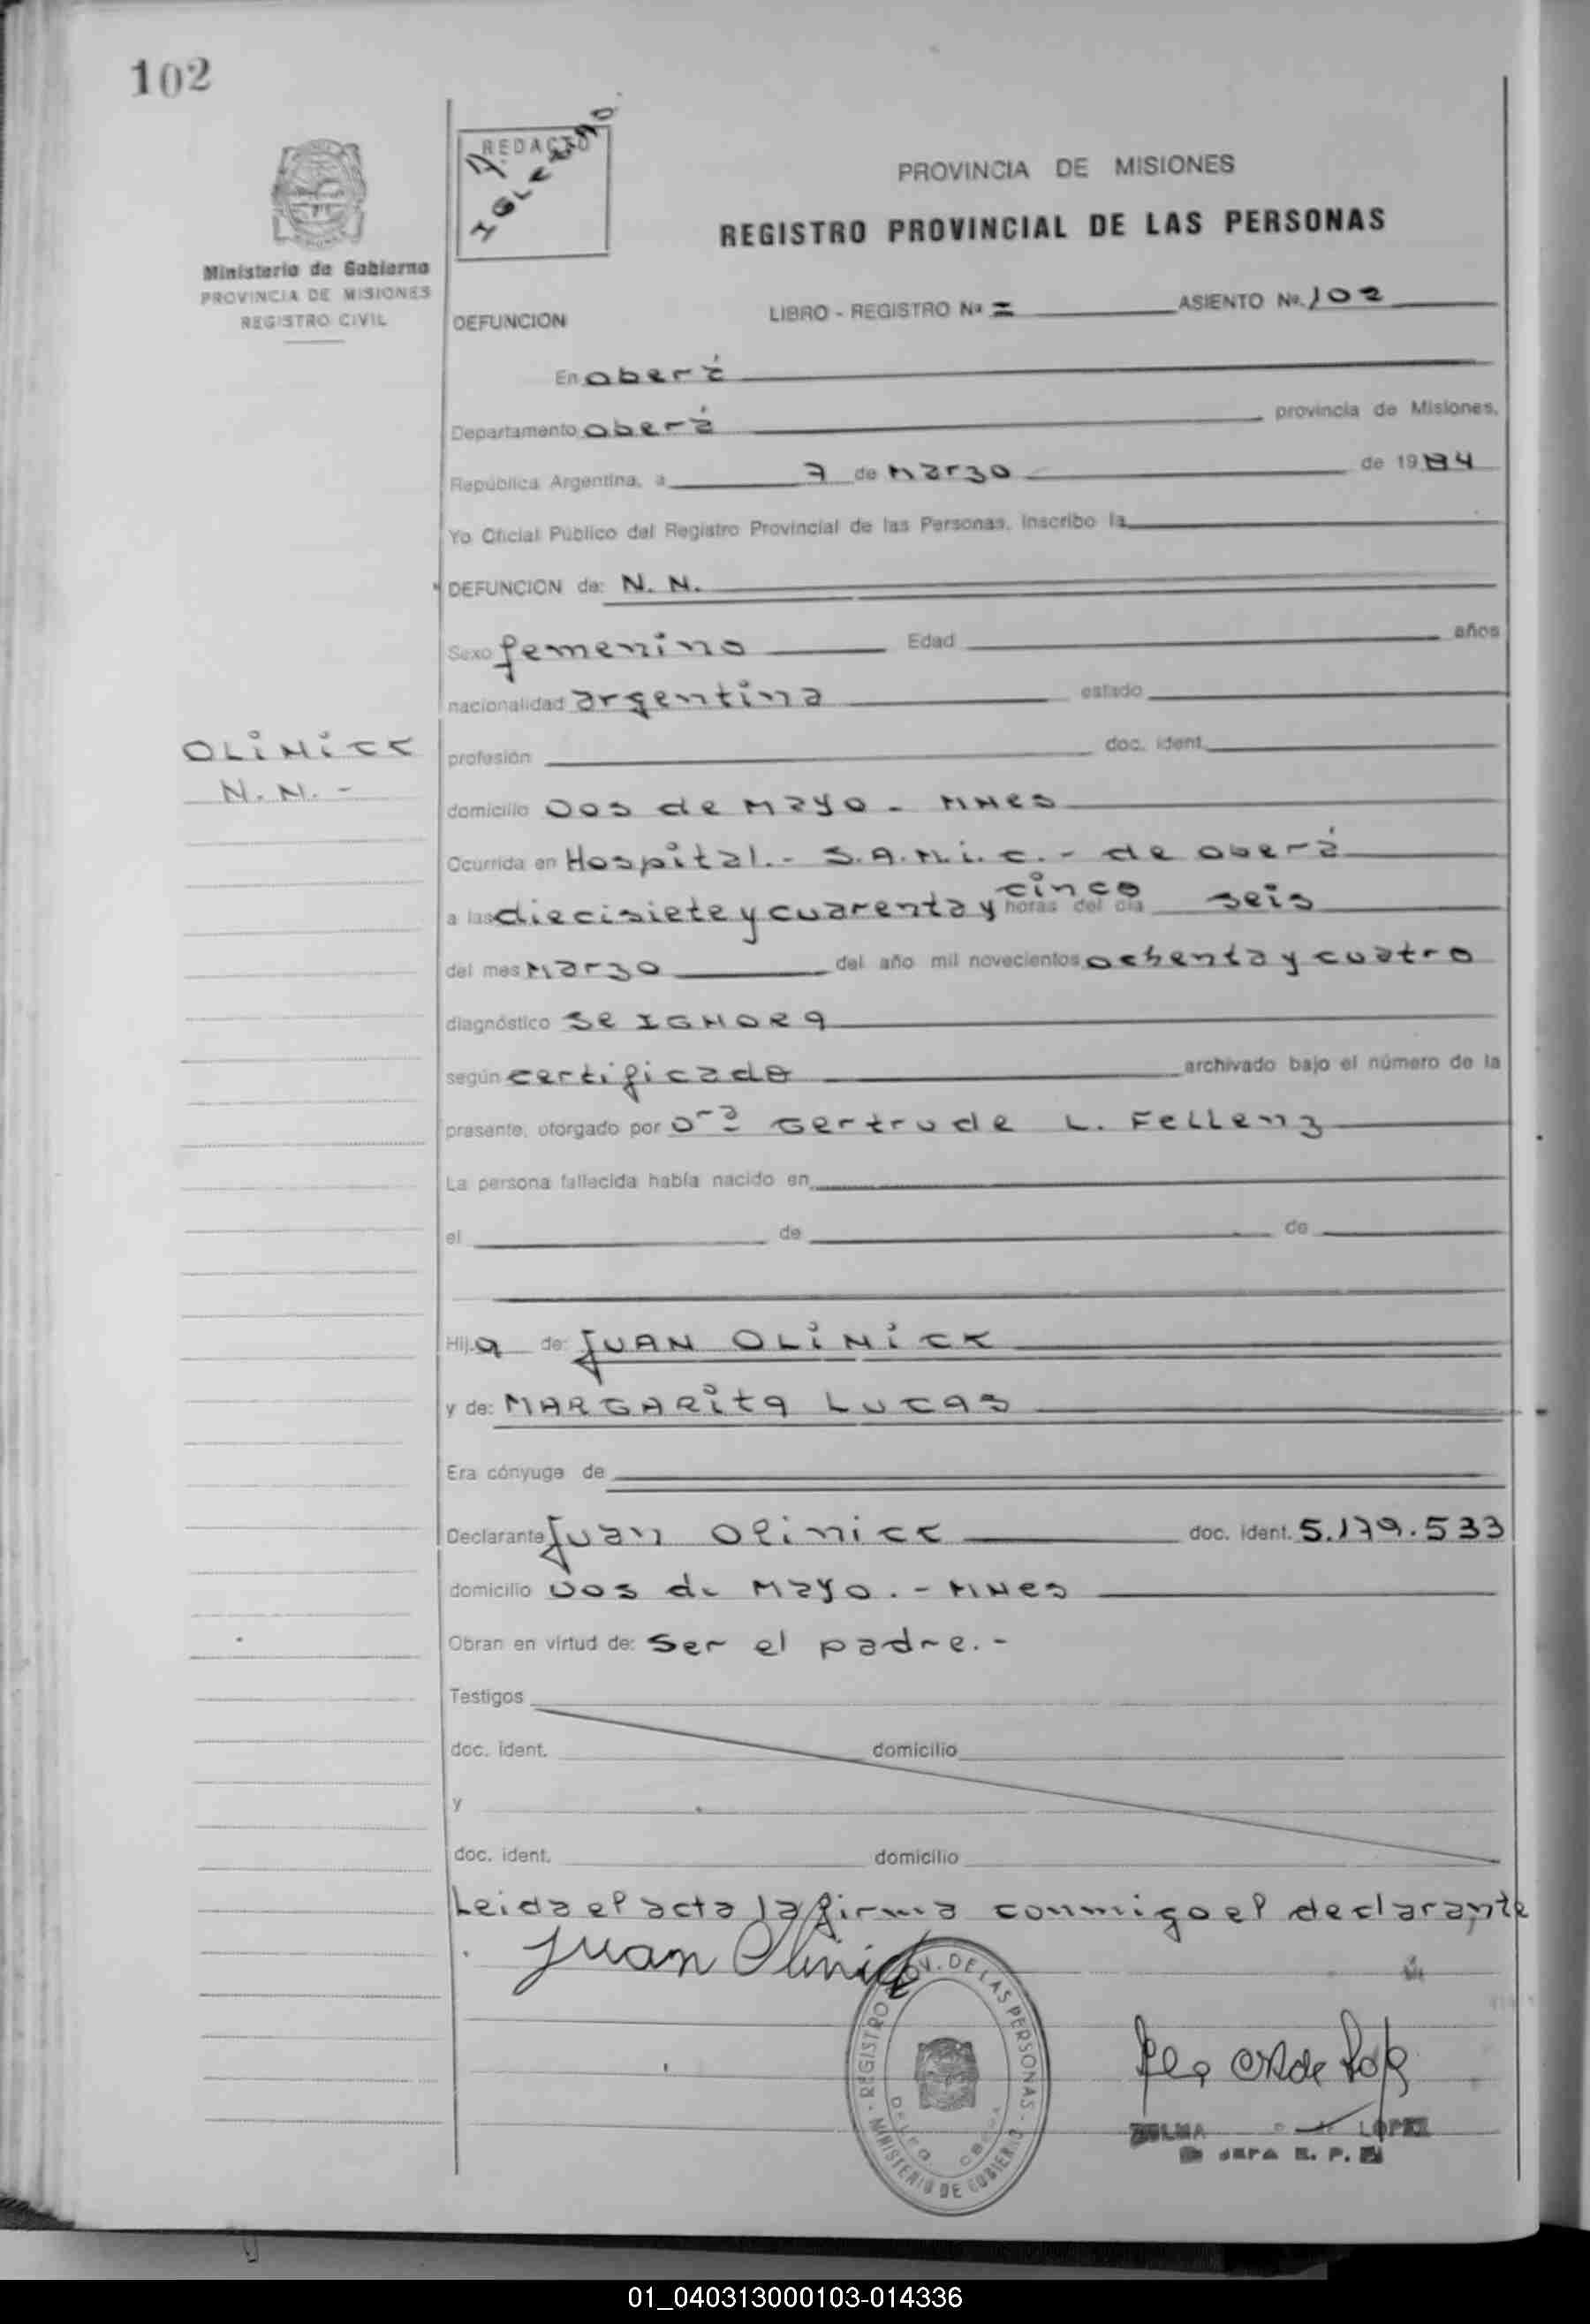 102
Ministerio de Gobierno
PROVINCIA DE MISIONES
REGISTRO CIVIL
REDACTO
PROVINCIA DE MISIONES
REGISTRO PROVINCIAL DE LAS PERSONAS
DEFUNCION LIBRO - REGISTRO Nº ASIENTO Nº 102
En Oberá
Departamento Oberá provincia de Misiones,
República Argentina, a 7 de Marzo de 1984
Yo Oficial Público del Registro Provincial de las Personas, inscribo la
DEFUNCION de: N. N.
Sexo femenino Edad años
nacionalidad argentina estado
OLINICK
N.N.-
profesión doc. ident.
domicilio Dos de Mayo - MNES
Ocurrida en Hospital.- S.A.M.i.c.- de Oberá
a las diecisiete y cuarenta y cinco horas del día seis
del mes Marzo del año mil novecientos ochenta y cuatro
diagnóstico SE IGNORA
según certificado archivado bajo el número de la
presente, otorgado por Dra Gertrude L. Fellenz
La persona fallecida había nacido en
el de de
Hija de: JUAN OLINICK
y de: MARGARITA LUCAS
Era cónyuge de
Declarante Juan Olinick doc. ident. 5.179.533
domicilio Dos de Mayo.- MNES
Obran en virtud de: Ser el padre.-
Testigos
doc. ident. domicilio
y
doc. ident. domicilio
Leida el acta la firma conmigo el declarante
Juan Olinick
REGISTRO PROV. DE LAS PERSONAS - MINISTERIO DE GOBIERNO
DELEG. OBERA
ZULMA LOPEZ
JEFA R. P.
01_040313000103-014336